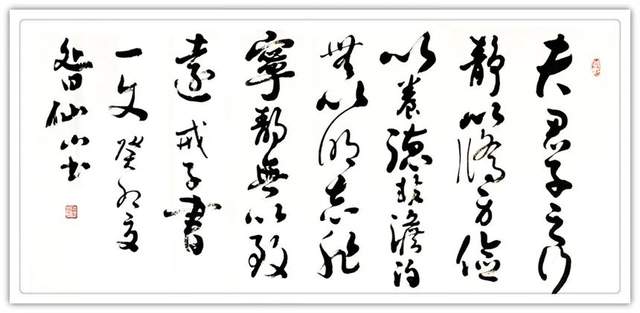 夫君子之行
靜以脩身儉
以養德非澹泊
無以明志非
寧靜無以致
遠戒子書
一文癸夏
仙山書